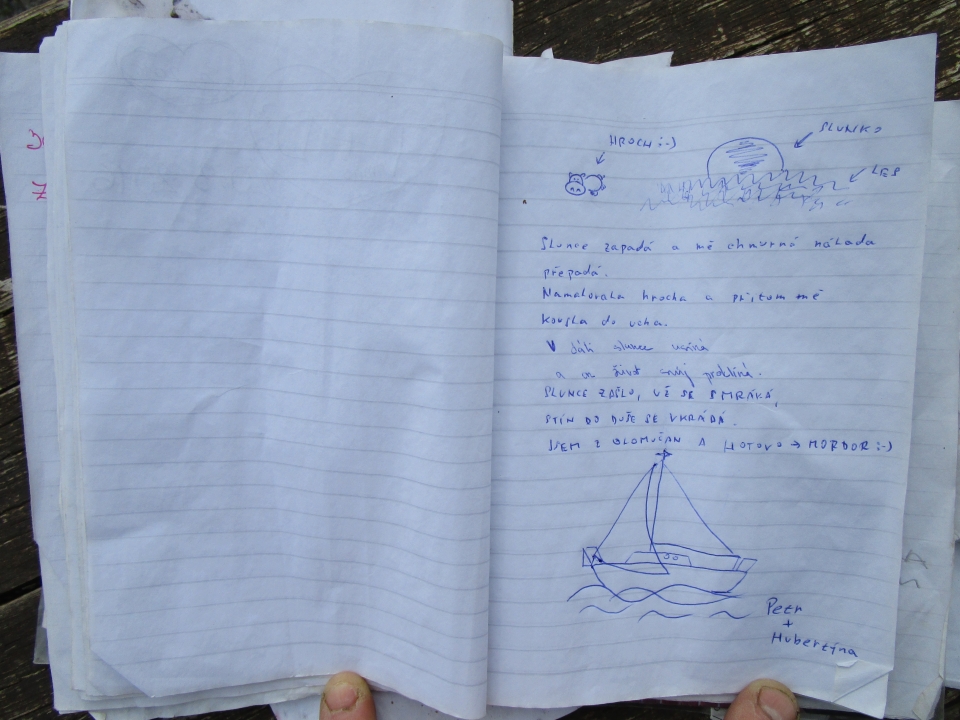 HROCH :-)
SLUNKO
LES
Slunce zapadá a mě chmurná nálada
přepadá.
Namalovala hrocha a přitom mě
kousla do ucha.
V dáli slunce usíná
a on život svůj proklíná.
SLUNCE ZAŠLO, UŽ SE SMRÁKÁ,
STÍN DO DUŠE SE VKRÁDÁ.
JSEM Z OLOMUČAN A HOTOVO → MORDOR :-)
Petr
+
Hubertína